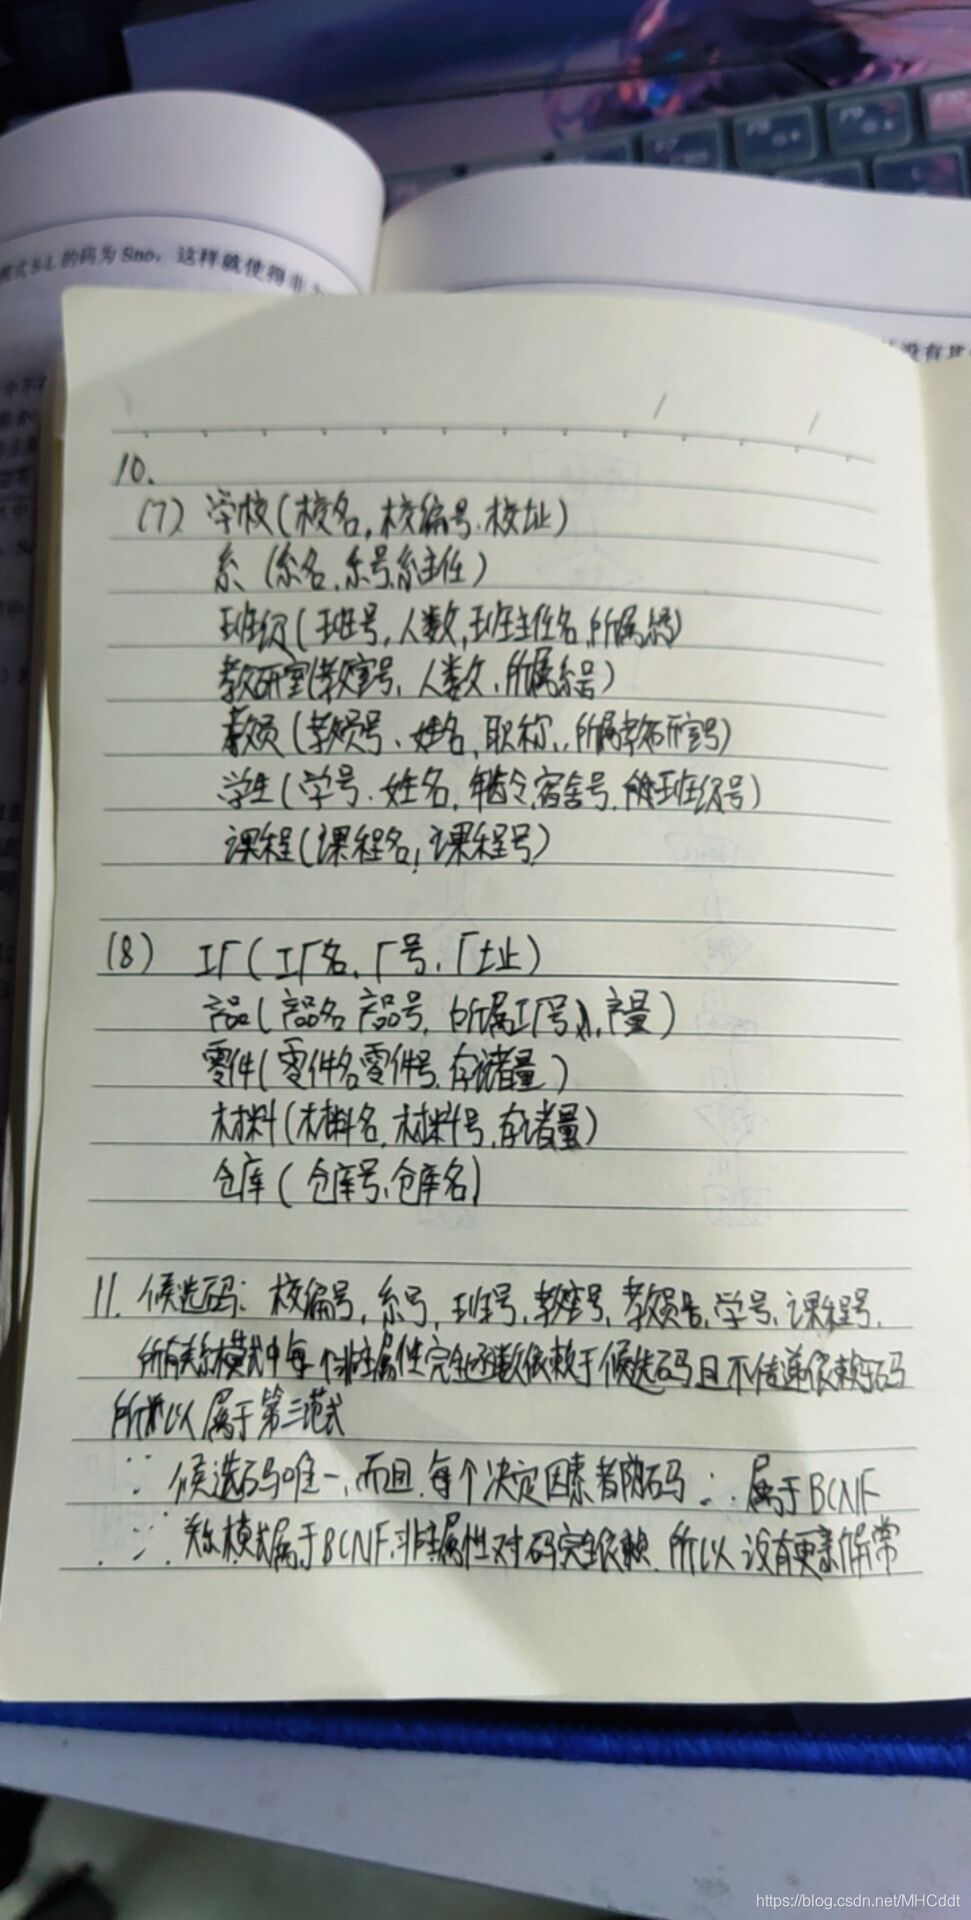 式S-L的码为Sno，这样就使得非
没有其
10.
(7) 学校(校名,校编号.校址)
系 (系名.系号,系主任)
班级(班号,人数,班主任名,所属系)
教研室(教室号,人数,所属系号)
教员(教员号、姓名,职称,.所属教研室号)
学生(学号.姓名,年龄,宿舍号,班级号)
课程(课程名,课程号)
(8) 工厂(工厂名,厂号,厂址)
产品(产品名,产品号,所属工厂号,产量)
零件(零件名,零件号,存储量)
材料(材料名,材料号,存储量)
仓库(仓库号,仓库名)
11. 候选码: 校编号,系号,班号,教室号,教员号,学号,课程号.
所有关系模式中每个非主属性完全函数依赖于候选码且不传递依赖于码
所以属于第三范式
∵ 候选码唯一,而且.每个决定因素都码 ∴ 属于BCNF
∵ 关系模式属于BCNF,非主属性对码完全依赖.所以没有更新异常
https://blog.csdn.net/MHCddt